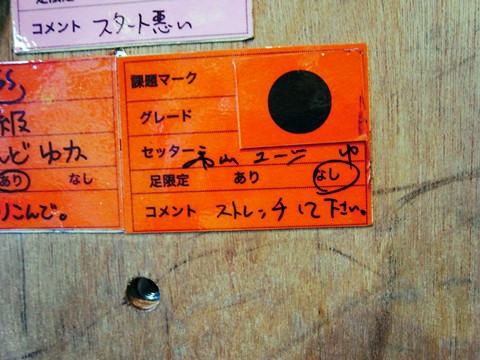 コメント スタート悪い
級
んど ゆか
あり なし
りこんで。
課題マーク
グレード
セッター
足限定 あり なし
コメント ストレッチして下さい。